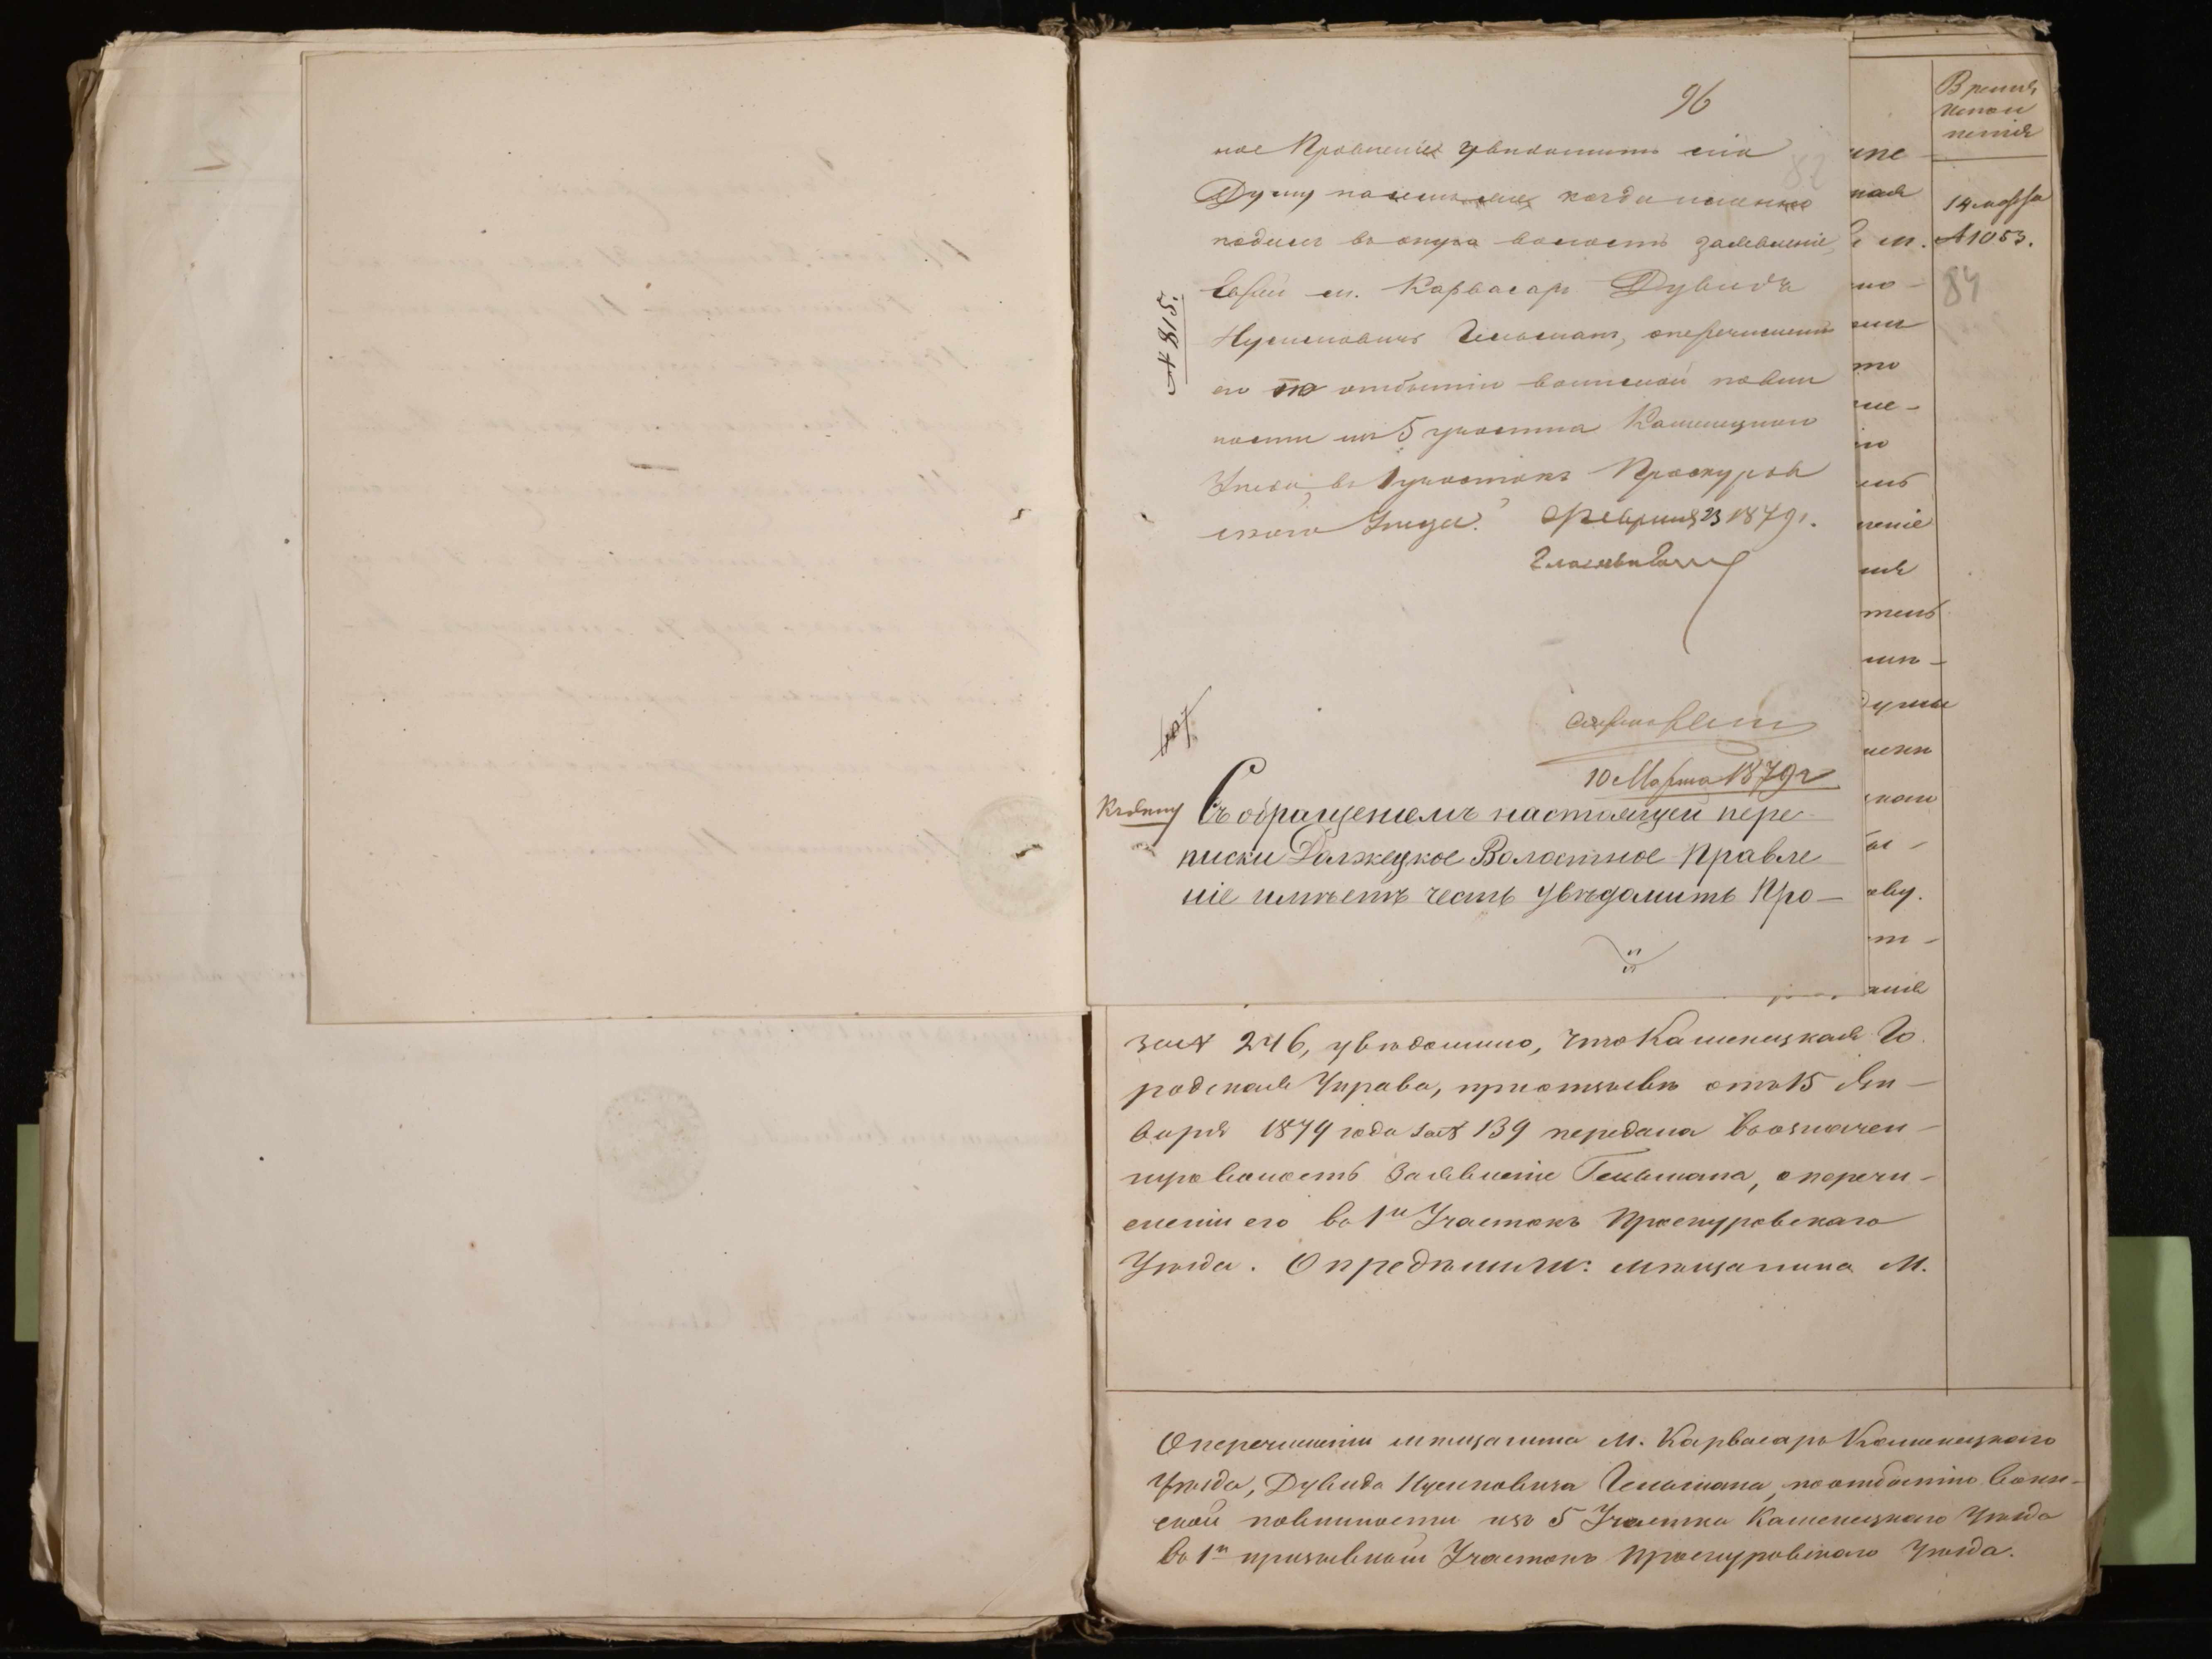 96
ное Правленіе увѣдомить сію
82
Думу когда именно
подалъ въ оную волость заявленіе,
м. Карвасаръ Дувидъ
Нусиновичъ Гельманъ, о перечисленіи
его по отбытію воинской повин
ности изъ 5 участка Каменецкаго
Уѣзда, въ 1 участокъ Проскуров
скаго Уѣзда. Февраля 23 1879 г.
№ 815.
10 Марта 1879 г
Къ дѣлу
Съ обращеніемъ настоящей пере
писки Должецкое Волостное Правле
ніе имѣетъ честь увѣдомить Про-
Время
испол
ненія
14 марта
№ 1053.
84
за № 246, увѣдомило, что Каменецкая Го
родская Управа, при отзывѣ отъ 15 Ян-
варя 1879 года за № 139 передала въ означен-
ную волость заявленіе Гельмана, о перечи-
сленіи его въ 1й Участокъ Проскуровскаго
Уѣзда. Опредѣлили: мѣщанина М.
О перечисленіи мѣщанина М. Карвасаръ Каменецкаго
Уѣзда, Дувида Нусиновича Гельмана, по отбытію воин-
ской повинности изъ 5 Участка Каменецкаго Уѣзда
въ 1й призывной Участокъ Проскуровскаго Уѣзда.